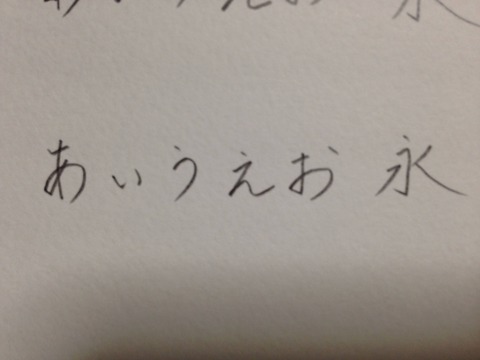 あいうえお 永